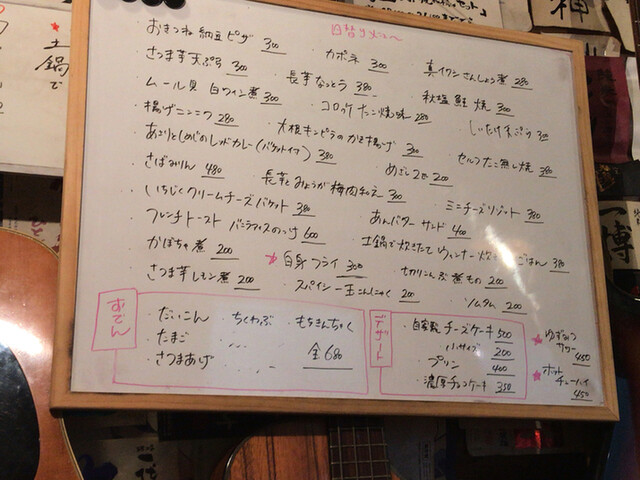 日替りメニュー
おきつね納豆ピザ 300 カポネ 300 真イワシさんしょう煮 280
さつま芋天ぷら 300 長芋なっとう 380 秋塩鮭焼 300
ムール貝 白ワイン煮 300 コロッケたこ焼味 280 しいたけ天ぷら 300
揚げニンニク 280 大根キンピラのかき揚げ 300 セルフたこ無し焼 380
あさりとしめじのレッドカレー(バケット付) 380 めざし2匹 200
さばみりん 480 長芋とみょうが梅肉和え 300 ミニチーズリゾット 380
いちじくクリームチーズバケット 380 あんバターサンド 400
フレンチトースト バニラアイスのっけ 600 土鍋で炊きたてウィンナー炊き ごはん 380
かぼちゃ煮 200 ★白身フライ 300 切りこんぶ煮もの 200
さつま芋レモン煮 200 スパイシー玉こんにゃく 200 ソムタム 200
おでん
・だいこん ・ちくわぶ ・もちきんちゃく
・たまご
・さつまあげ 全680
デザート
・自家製チーズケーキ 500
小サイズ 200
・プリン 400
・濃厚チョコケーキ 350
★ゆずみつサワー 450
★ホットチューハイ 450
土鍋で